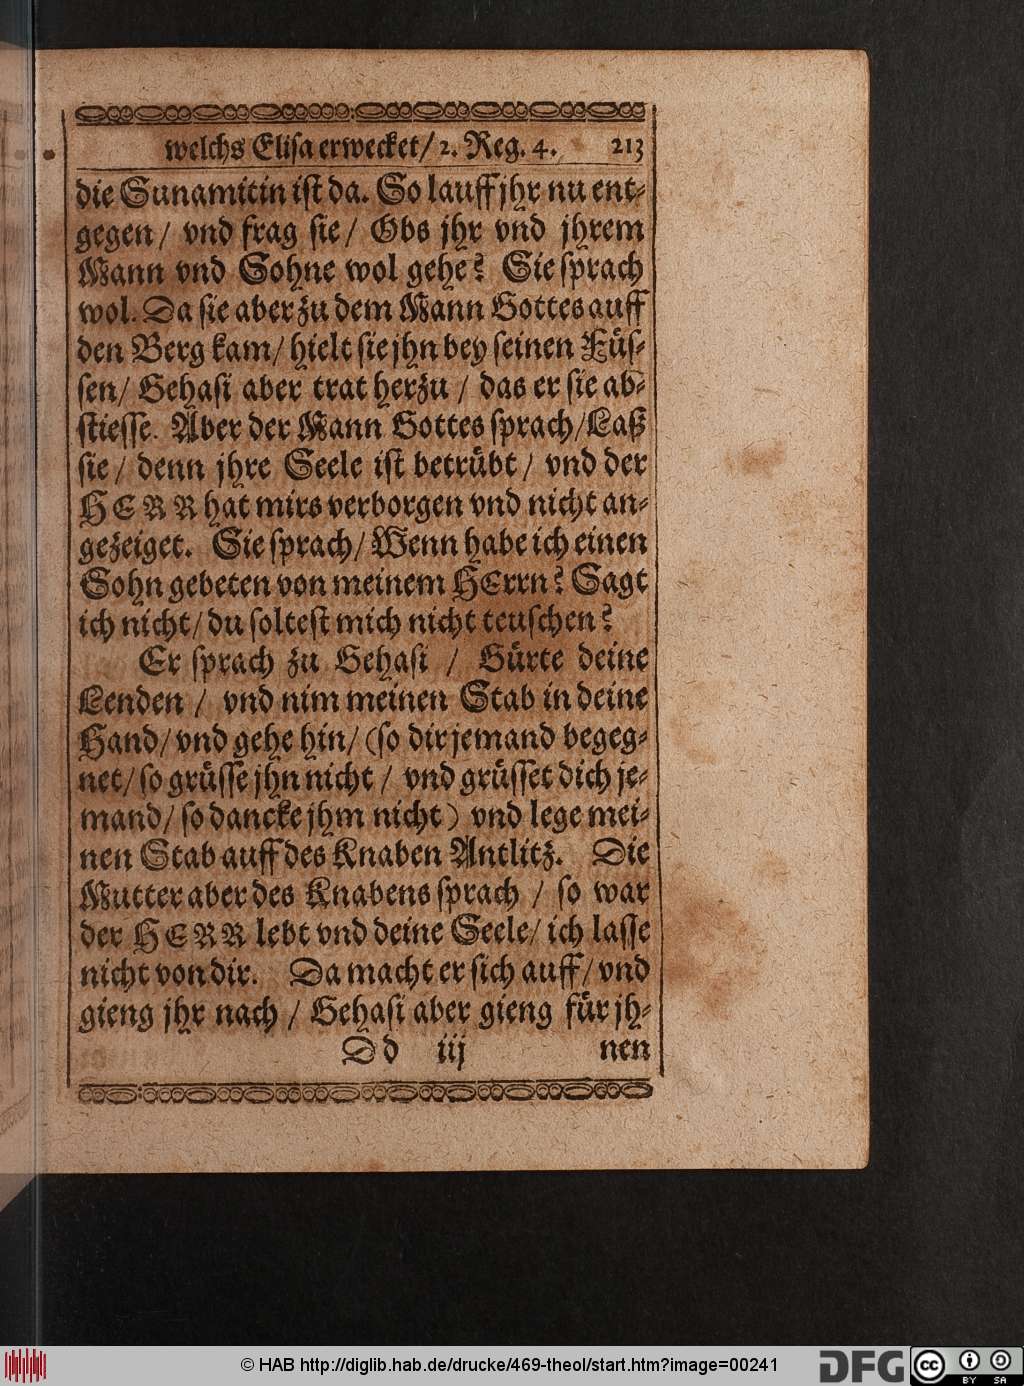 welchs Elisa erwecket/ 2. Reg. 4. 213
die Sunamitin ist da. So lauff jhr nu ent-
gegen/ vnd frag sie/ Obs jhr vnd jhrem
Mann vnd Sohne wol gehe? Sie sprach
wol. Da sie aber zu dem Mann Gottes auff
den Berg kam/ hielt sie jhn bey seinen Füs-
sen/ Gehasi aber trat herzu / das er sie ab-
stiesse. Aber der Mann Gottes sprach/ Laß
sie / denn jhre Seele ist betrübt / vnd der
HERR hat mirs verborgen vnd nicht an-
gezeiget. Sie sprach/ Wenn habe ich einen
Sohn gebeten von meinem HErrn? Sagt
ich nicht/ du soltest mich nicht teuschen?
Er sprach zu Gehasi / Gürte deine
Lenden / vnd nim meinen Stab in deine
Hand/ vnd gehe hin/ (so dir jemand begeg-
net/ so grüsse jhn nicht / vnd grüsset dich je-
mand/ so dancke jhm nicht) vnd lege mei-
nen Stab auff des Knaben Antlitz. Die
Mutter aber des Knabens sprach / so war
der HERR lebt vnd deine Seele/ ich lasse
nicht von dir. Da macht er sich auff/ vnd
gieng jhr nach / Gehasi aber gieng für jh-
Dd iij nen
© HAB http://diglib.hab.de/drucke/469-theol/start.htm?image=00241
DFG
cc BY SA